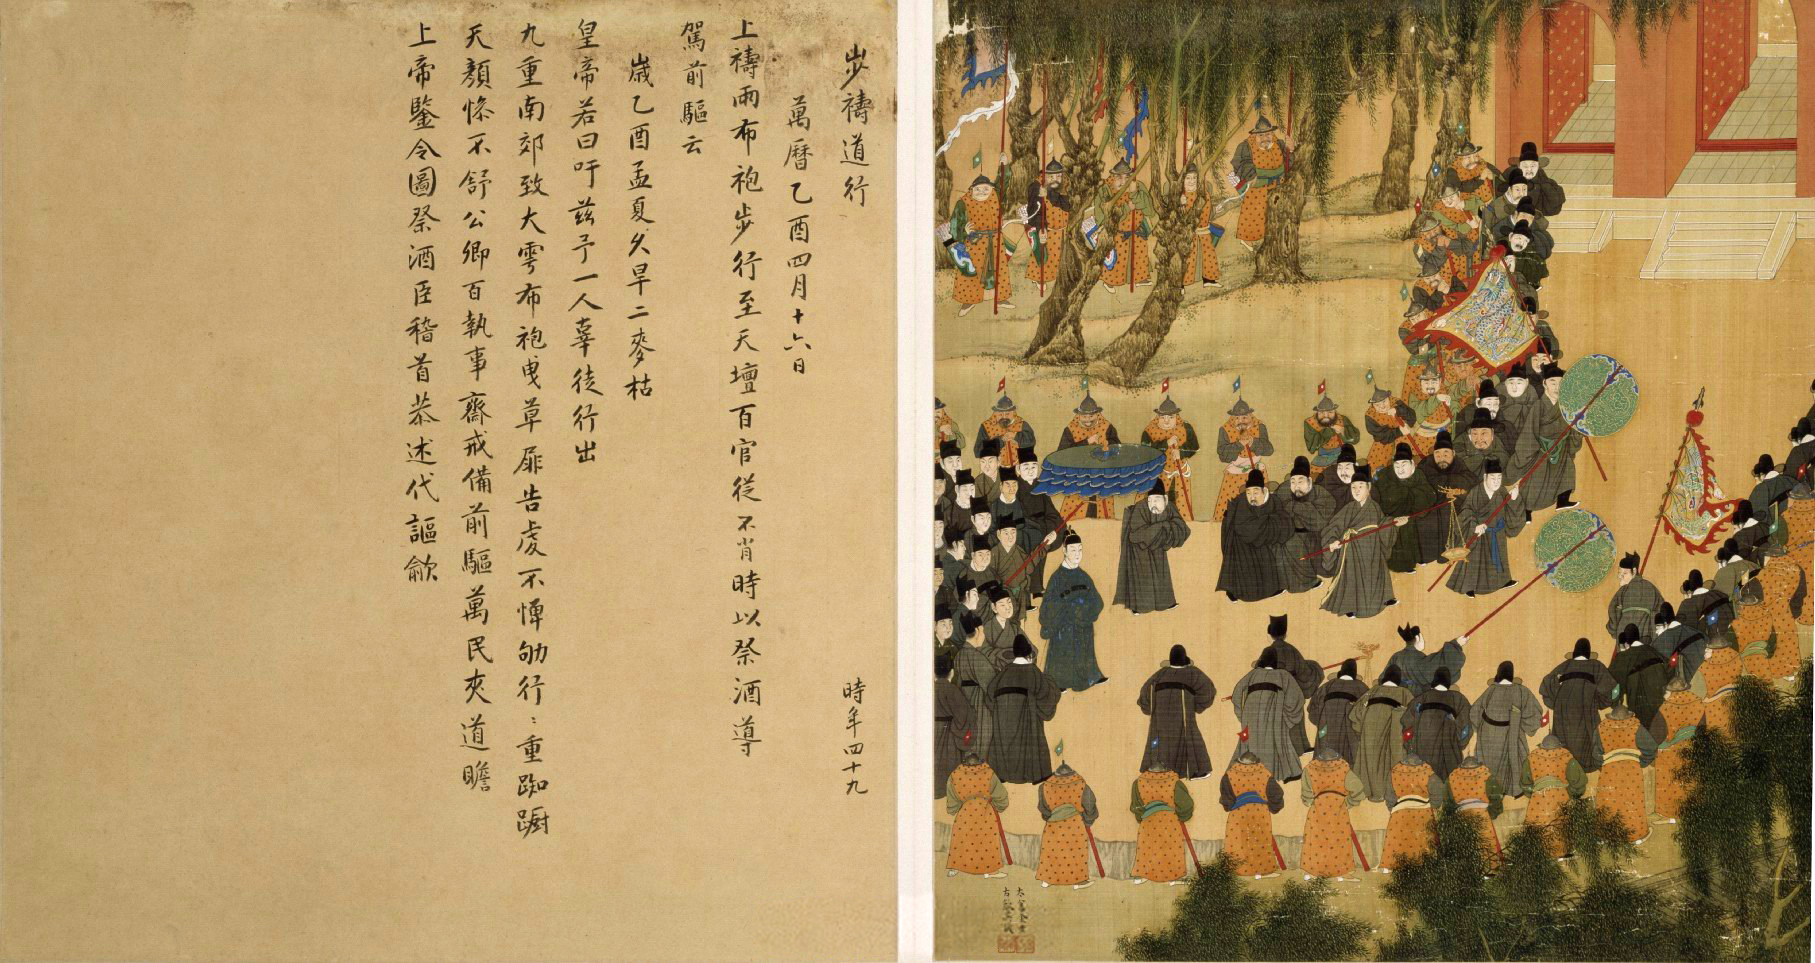 步禱道行 時年四十九
萬曆乙酉四月十六日
上禱雨布袍步行至天壇百官從不肖時以祭酒導
駕前驅云
歲乙酉孟夏久旱二麥枯
皇帝若曰吁茲予一人辜徒行出
九重南郊致大雩布袍曳草屝告虔不憚劬行〻重踟躕
天顏慘不舒公卿百執事齋戒備前驅萬民夾道瞻
上帝鑒令圖祭酒臣稽首恭述代謳歈